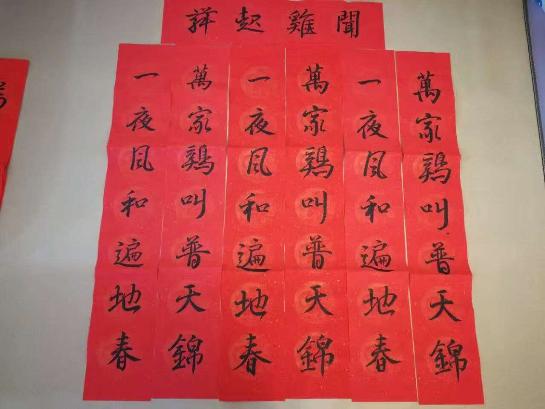 聞雞起舞
萬家鷄叫普天錦
一夜風和遍地春
萬家鷄叫普天錦
一夜風和遍地春
萬家鷄叫普天錦
一夜風和遍地春